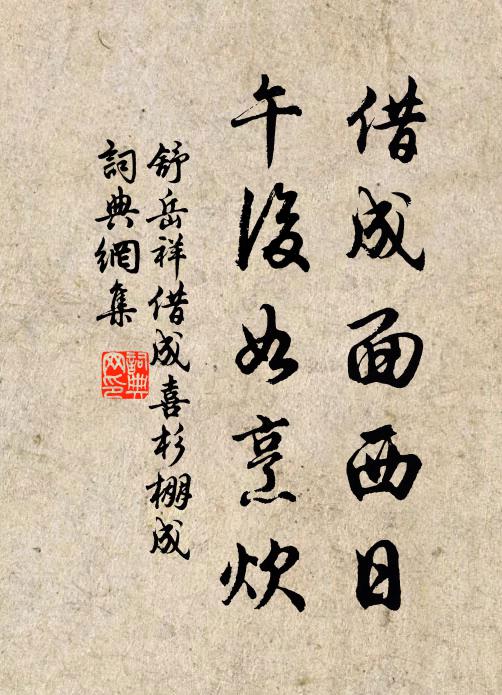 借成面西日
午後如烹炊
舒岳祥借成喜杉棚成
詞典網集
詞典網印